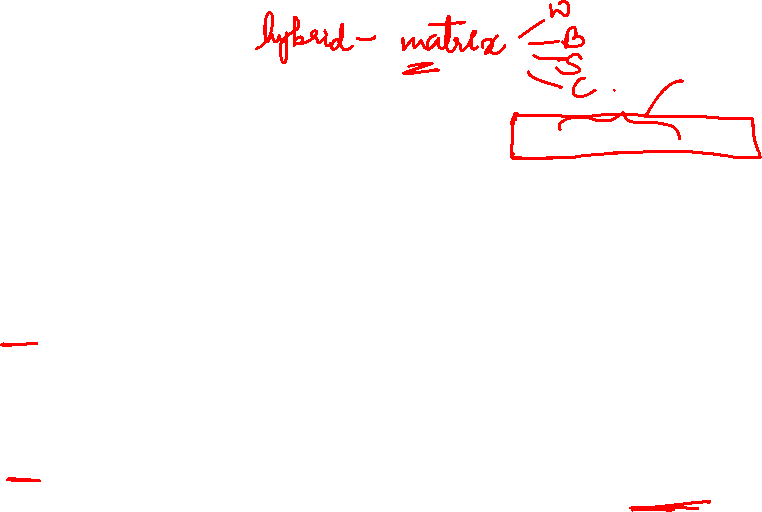 hybrid - matrix
D
B
S
C